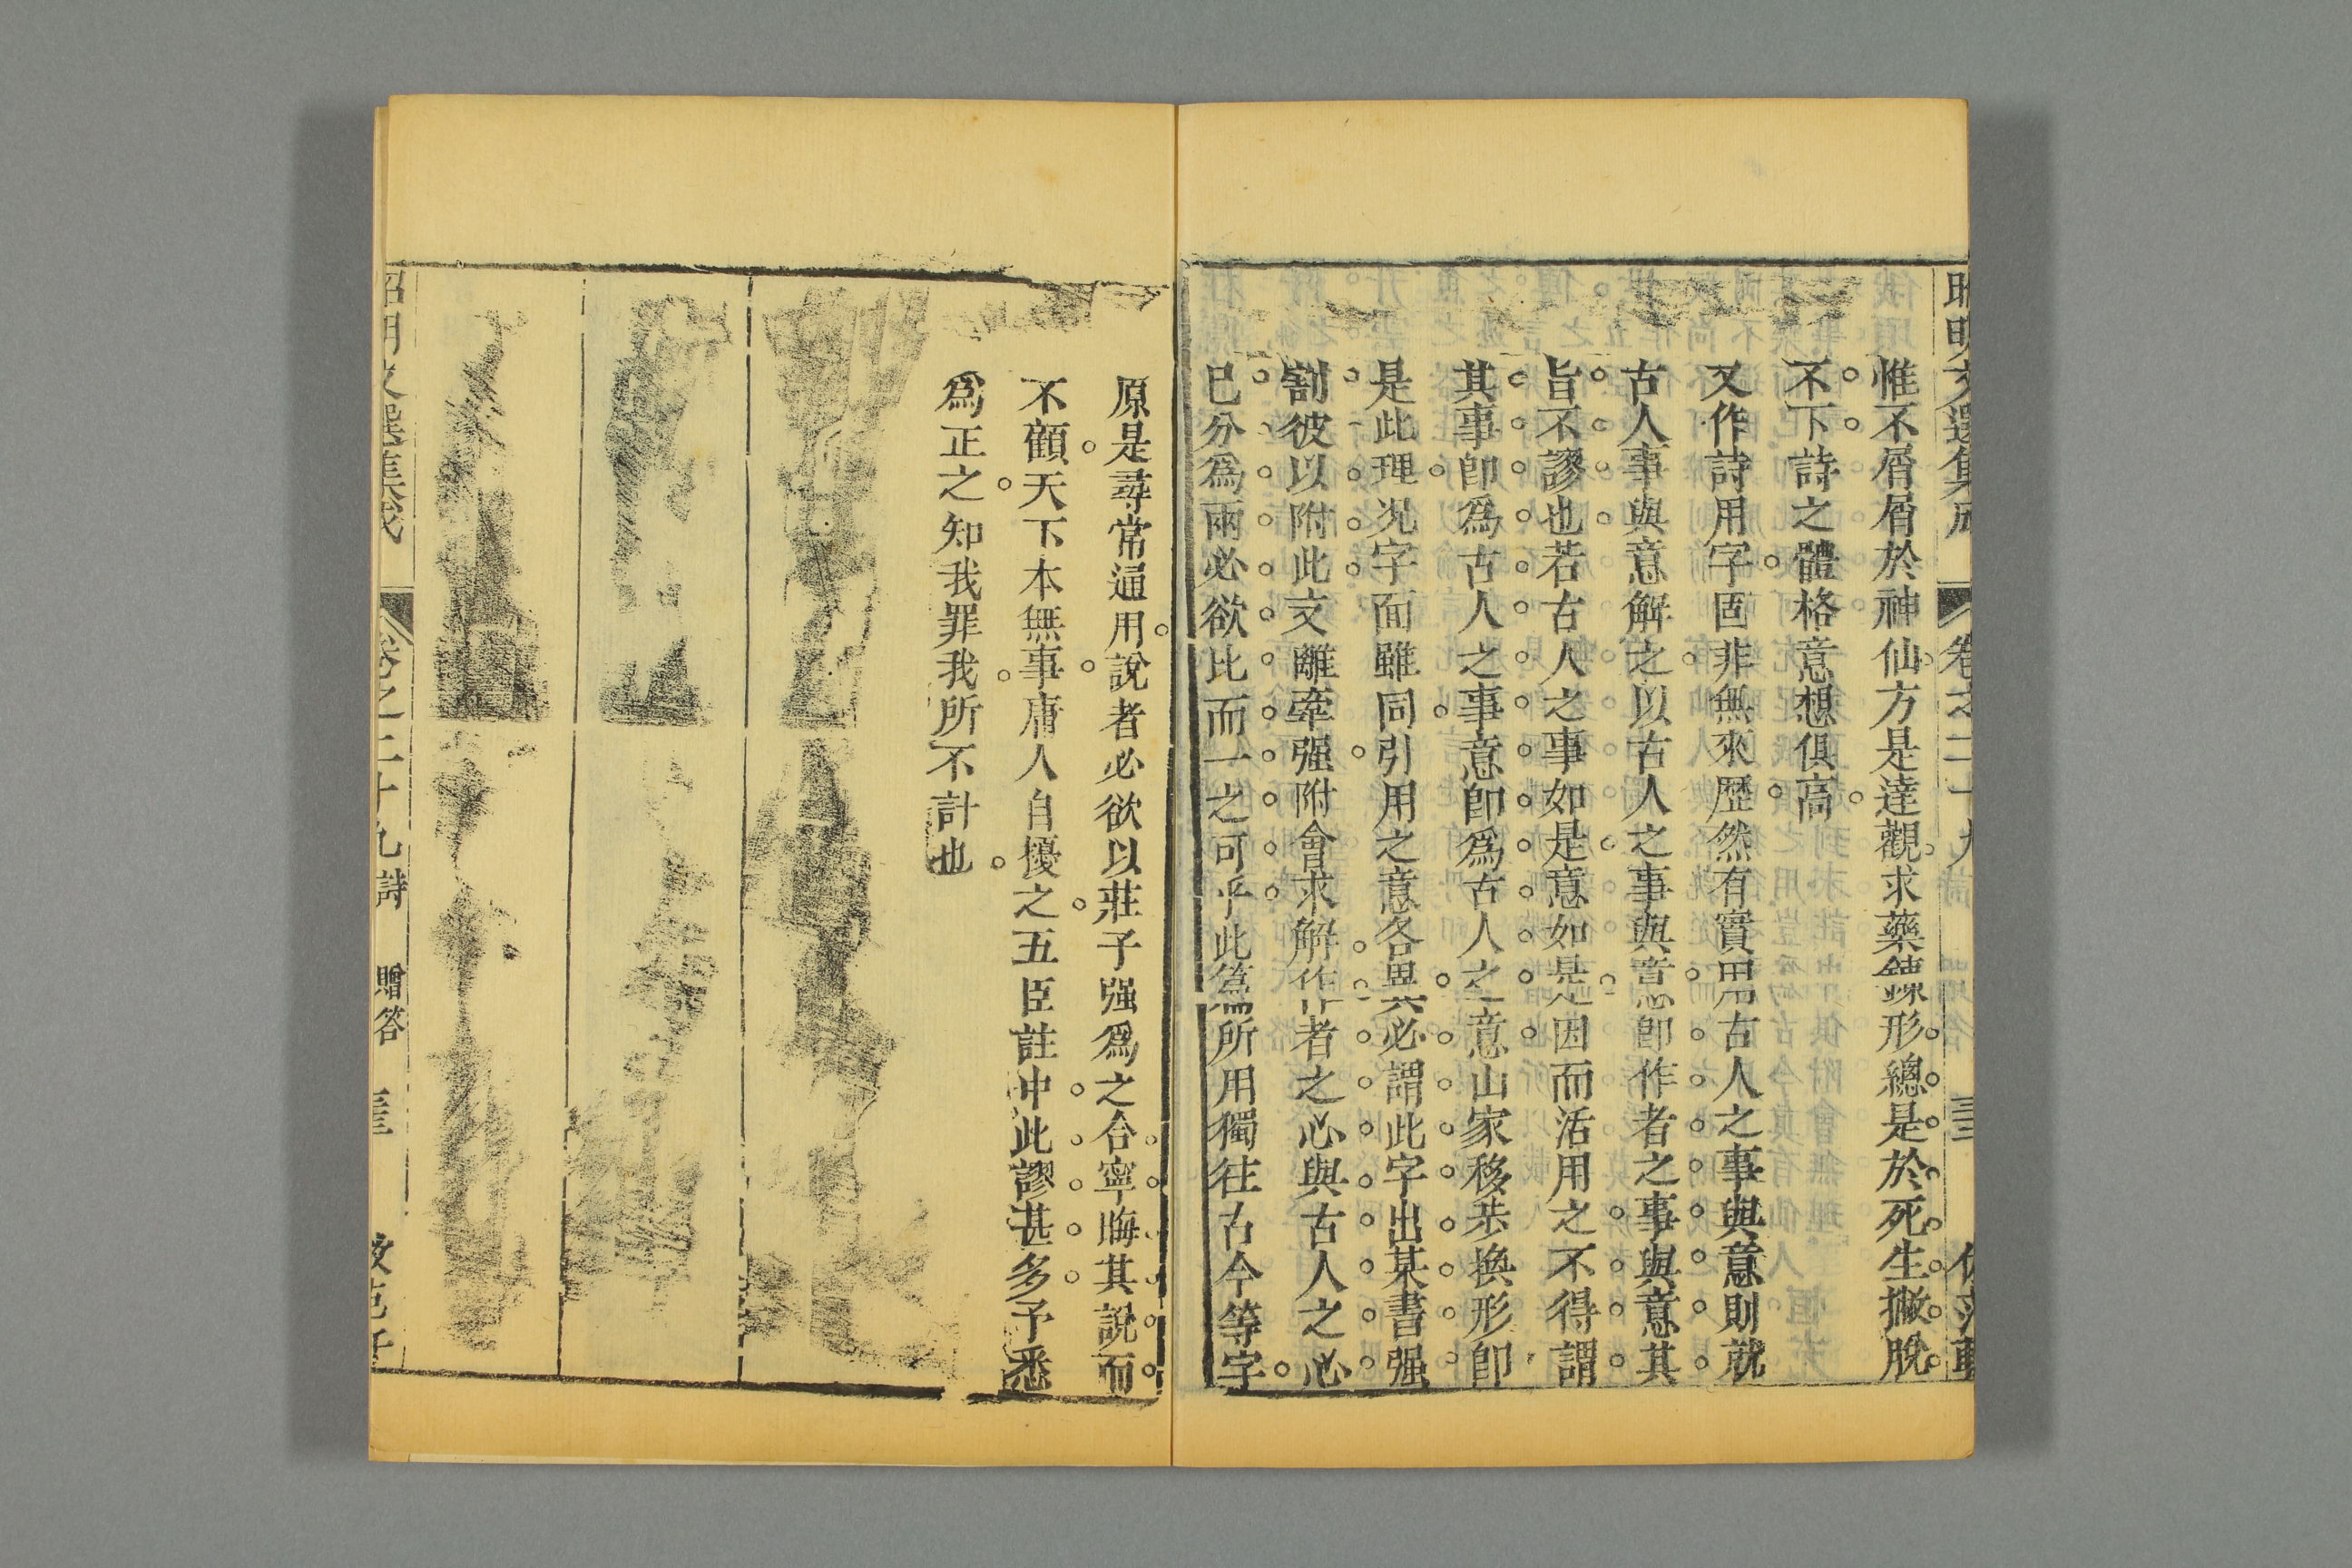 昭明文選集成 卷之二十九
惟不屑屑於神仙方是達觀求藥鍊形總是於死生撇脫
不下詩之體格意想俱高
又作詩用字固非無來歷然有實用古人之事與意則就
古人事與意解之以古人之事與意即作者之事與意其
旨不謬也若古人之事如是意如是因而活用之不得謂
其事卽爲古人之事意卽爲古人之意山家移步換形卽
是此理況字面雖同引用之意各異必謂此字出某書强
割彼以附此文離牽强附會求解作者之心與古人之心
已分爲兩必欲比而一之可乎此篇所用獨往古今等字
原是尋常通用說者必欲以莊子强爲之合寧晦其說而
不顧天下本無事庸人自擾之五臣註中此謬甚多予悉
爲正之知我罪我所不計也
昭明文選集成 卷之二十九 詩 贈答